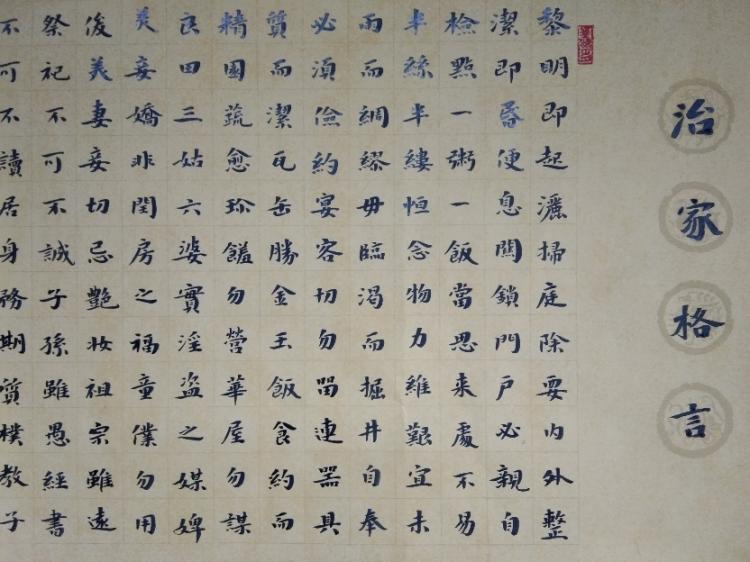 治家格言
黎明即起灑掃庭除要内外整
潔即昏便息關鎖門戶必親自
檢點一粥一飯當思來處不易
半絲半縷恒念物力維艱宜未
雨而綢繆毋臨渴而掘井自奉
必須儉約宴客切勿留連器具
質而潔瓦缶勝金玉飯食約而
精園蔬愈珍饈勿營華屋勿謀
良田三姑六婆實淫盜之媒婢
美妾嬌非閨房之福童僕勿用
俊美妻妾切忌艷妝祖宗雖遠
祭祀不可不誠子孫雖愚經書
不可不讀居身務期質樸教子